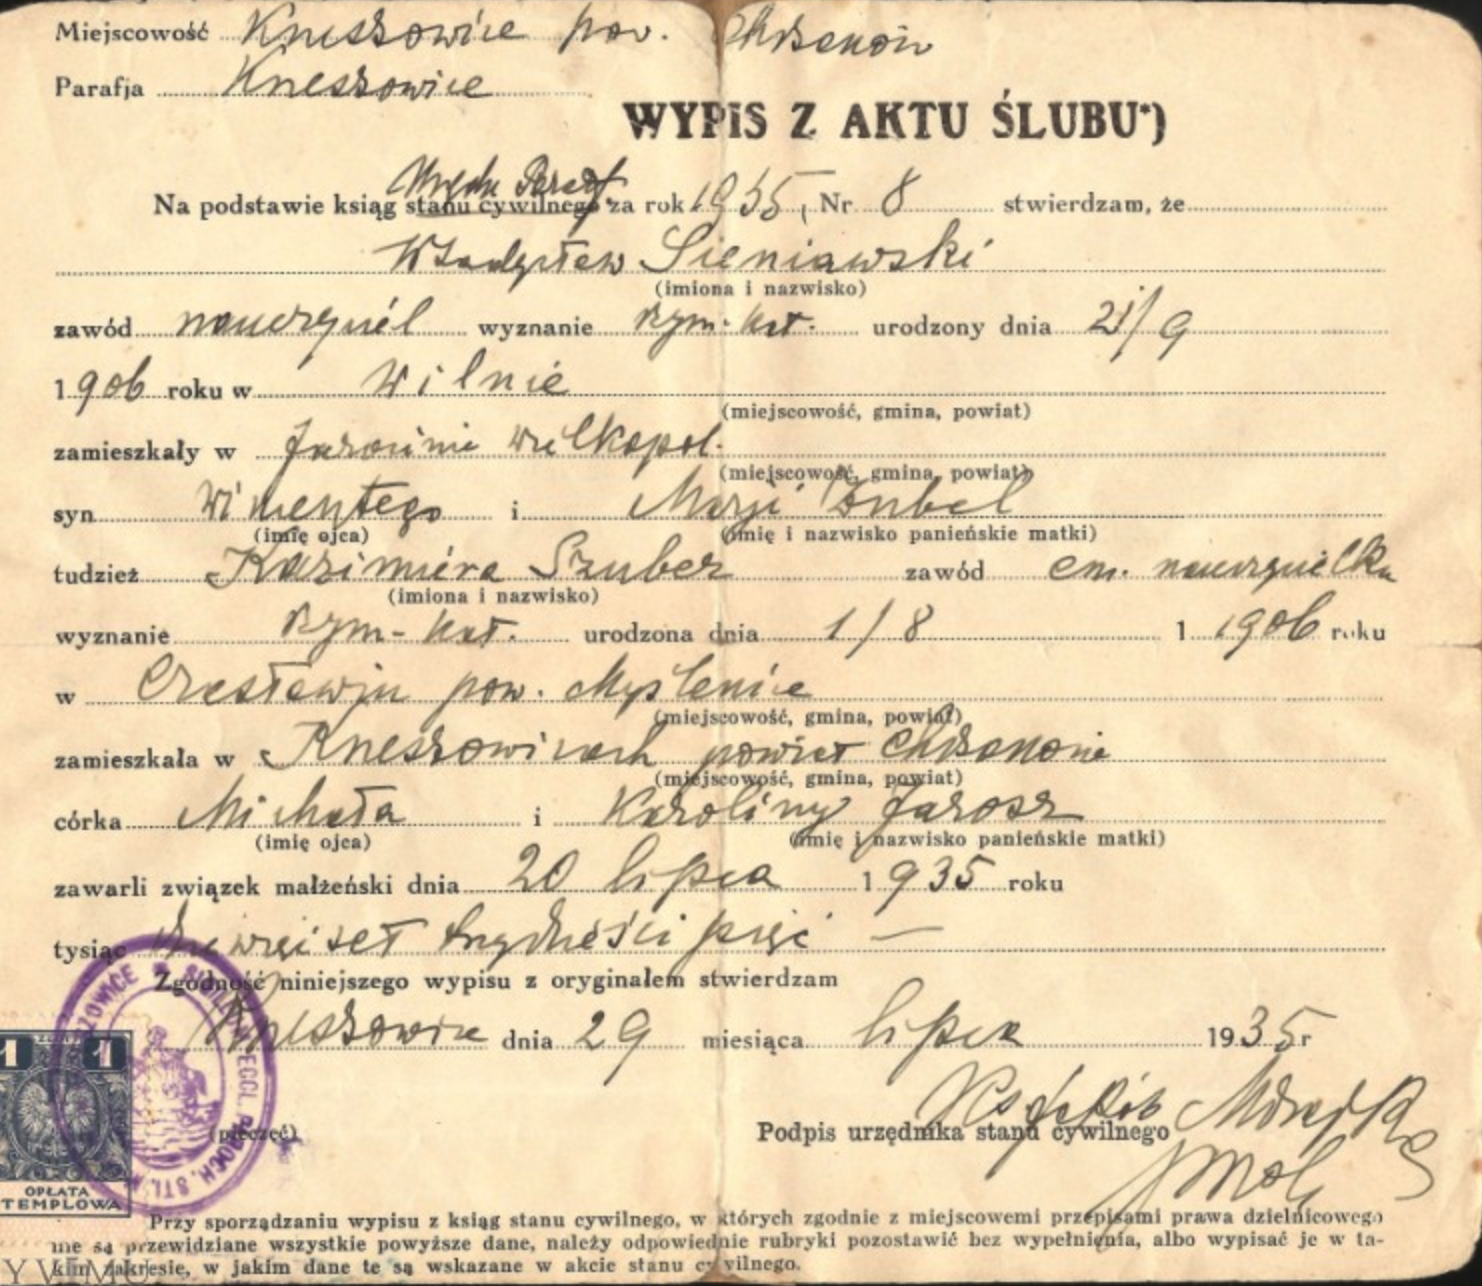 Miejscowość Kneszowice pow. Chrzanów
Parafja Kneszowice
WYPIS Z AKTU ŚLUBU*)
Urzędu Paraf.
Na podstawie ksiąg stanu cywilnego za rok 1935, Nr 8 stwierdzam, że
Władysław Sieniawski
(imiona i nazwisko)
zawód nauczyciel wyznanie rzym.-kat. urodzony dnia 21/9
1906 roku w Wilnie
(miejscowość, gmina, powiat)
zamieszkały w Jarocinie wielkopol.
(miejscowość, gmina, powiat)
syn Wincentego i Marji Zubel
(imię ojca) (imię i nazwisko panieńskie matki)
tudzież Kazimiera Szuber zawód em. nauczycielka
(imiona i nazwisko)
wyznanie rzym-kat. urodzona dnia 1/8 1 1906 roku
w Czesławiu pow. Myślenice
(miejscowość, gmina, powiat)
zamieszkała w Kneszowicach powiat Chrzanów
(miejscowość, gmina, powiat)
córka Michała i Karoliny Jarosz
(imię ojca) (imię i nazwisko panieńskie matki)
zawarli związek małżeński dnia 20 lipca 1935 roku
tysiąc dziewięćset trzydzieści pięć —
Zgodność niniejszego wypisu z oryginałem stwierdzam
Kneszowice dnia 29 miesiąca lipca 1935 r
(pieczęć)
Podpis urzędnika stanu cywilnego
1 1
OPŁATA
STEMPLOWA
Przy sporządzaniu wypisu z ksiąg stanu cywilnego, w których zgodnie z miejscowemi przepisami prawa dzielnicowego
nie są przewidziane wszystkie powyższe dane, należy odpowiednie rubryki pozostawić bez wypełnienia, albo wypisać je w ta-
kim zakresie, w jakim dane te są wskazane w akcie stanu cywilnego.